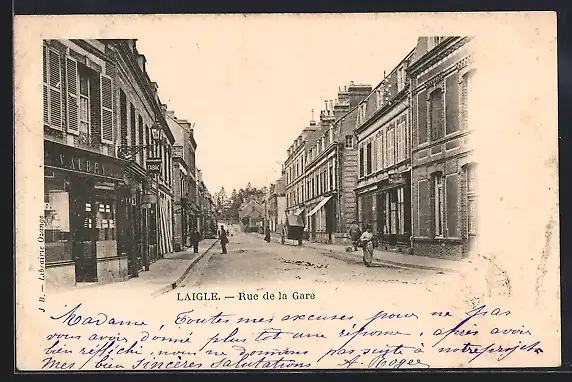 VAUBRY
J B. – Librairie Ozange
LAIGLE. — Rue de la Gare
Madame, Toutes mes excuses, pour ne pas
vous avoir donné plus tot une réponse, après avoir
bien réfléchi, nous ne donnons pas suite à notre projet.
Mes bien sincères salutations A. Roger